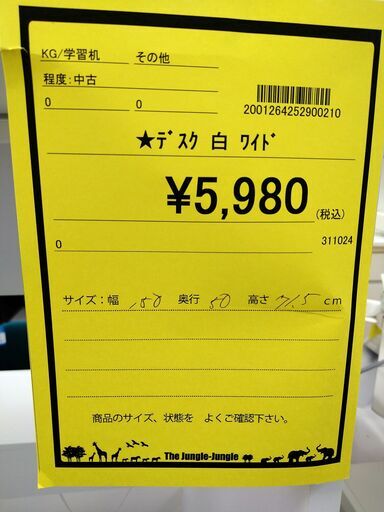 KG/学習机 その他
程度:中古
0 0
2001264252900210
★ﾃﾞｽｸ 白 ﾜｲﾄﾞ
¥5,980(税込)
0 311024
サイズ:幅 150 奥行 50 高さ 71.5 cm
商品のサイズ、状態を よくご確認下さい。
The Jungle-Jungle